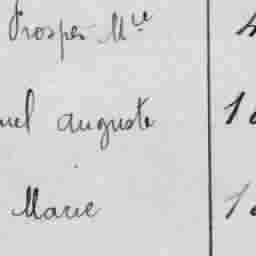 Prosper Mce 4
uel auguste 16
Marie 16